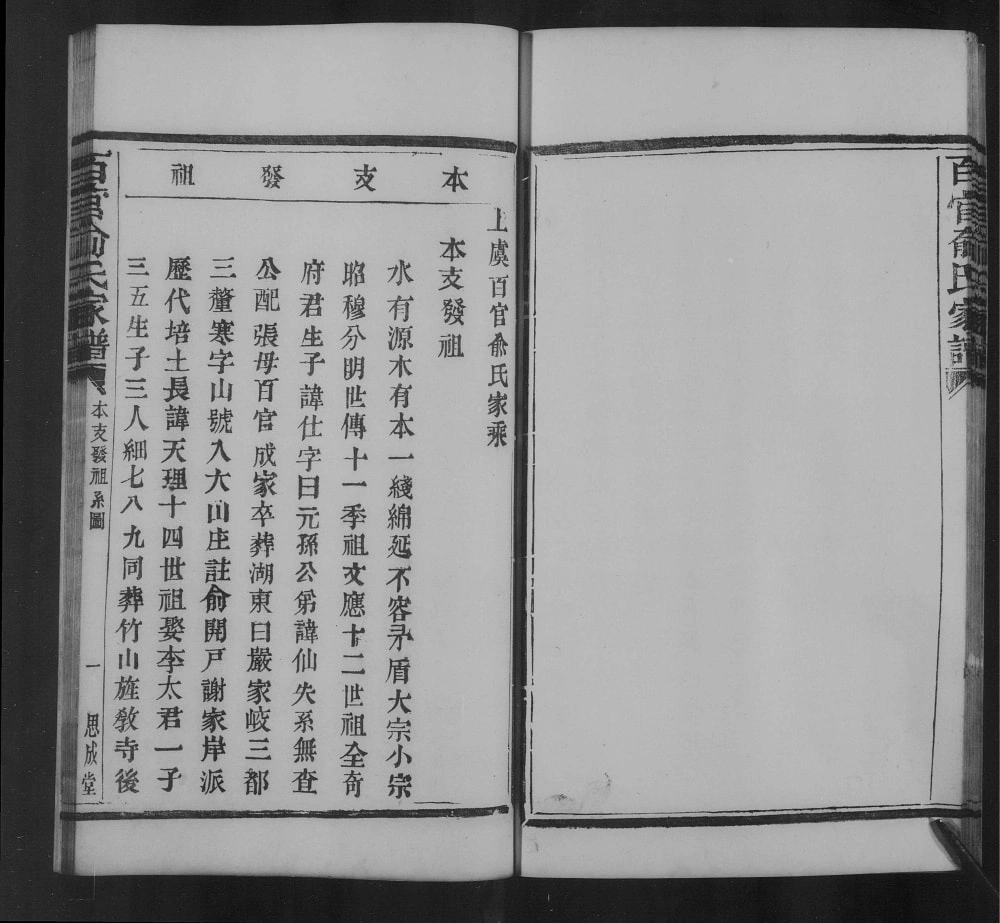 百官俞氏家譜
本支發祖
上虞百官俞氏家乘
本支發祖
水有源木有本一綫綿延不容矛盾大宗小宗
昭穆分明世傳十一季祖文應十二世祖全奇
府君生子諱仕字曰元孫公弟諱仙失系無查
公配張母百官成家卒葬湖東曰嚴家岐三都
三釐寒字山號入大山庄註俞開戸謝家岸派
歷代培土長諱天理十四世祖娶李太君一子
三五生子三人細七八九同葬竹山旌教寺後
百官俞氏家譜
本支發祖系圖
一
思成堂